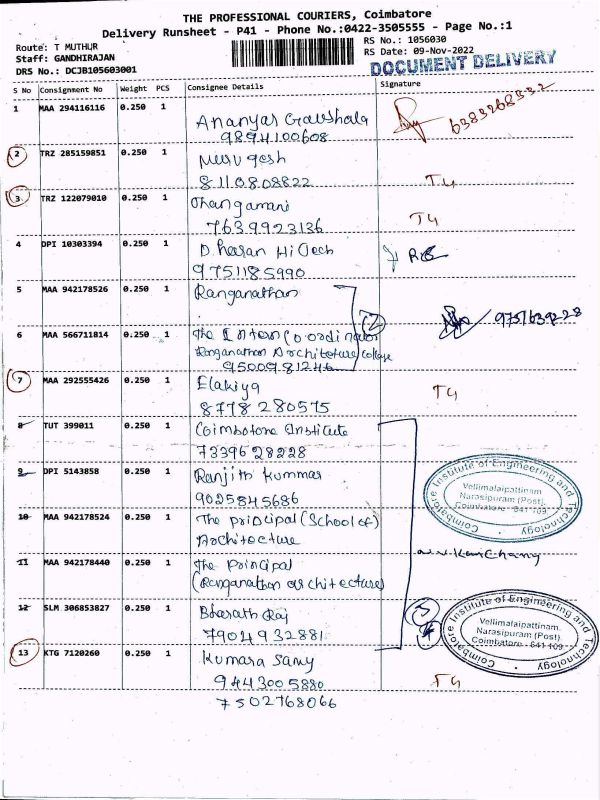 THE PROFESSIONAL COURIERS, Coimbatore
Delivery Runsheet - P41 - Phone No.:0422-3505555 - Page No.:1
Route: T MUTHUR
RS No.: 1056030
Staff: GANDHIRAJAN
RS Date: 09-Nov-2022
DRS No.: DCJB105603001
DOCUMENT DELIVERY
S No Consignment No Weight PCS Consignee Details Signature
1 MAA 294116116 0.250 1
Ananyas Gaushala 6383268332
9894100608
2 TRZ 285159851 0.250 1
Murugesh
8110808822 T4
3 TRZ 122079010 0.250 1
Thangamani T4
7639923136
4 DPI 10303394 0.250 1
Dharan Hi Tech
9751185990
5 MAA 942178526 0.250 1
Ranganathan
2 9751639228
6 MAA 566711814 0.250 1
The Intern Coordinator
Ranganathan Architeture College
9500981246
7 MAA 292555426 0.250 1
Elakiya T4
8778280575
8 TUT 399011 0.250 1
Coimbatore Institute
7339628228
9 DPI 5143858 0.250 1
Ranjith Kummar
9025845686
Coimbatore Institute of Engineering and Technology
Vellimalaipattinam
Narasipuram (Post),
Coimbatore - 641 109.
10 MAA 942178524 0.250 1
The principal (School of)
Architecture
11 MAA 942178440 0.250 1
The Principal
(Ranganathan architecture)
12 SLM 306853827 0.250 1
Bharath Raj
7904932881
Coimbatore Institute of Engineering and Technology
Vellimalaipattinam,
Narasipuram (Post)
Coimbatore - 641 109.
13 KTG 7120260 0.250 1
Kumara Samy
9443005880 T4
7502768066